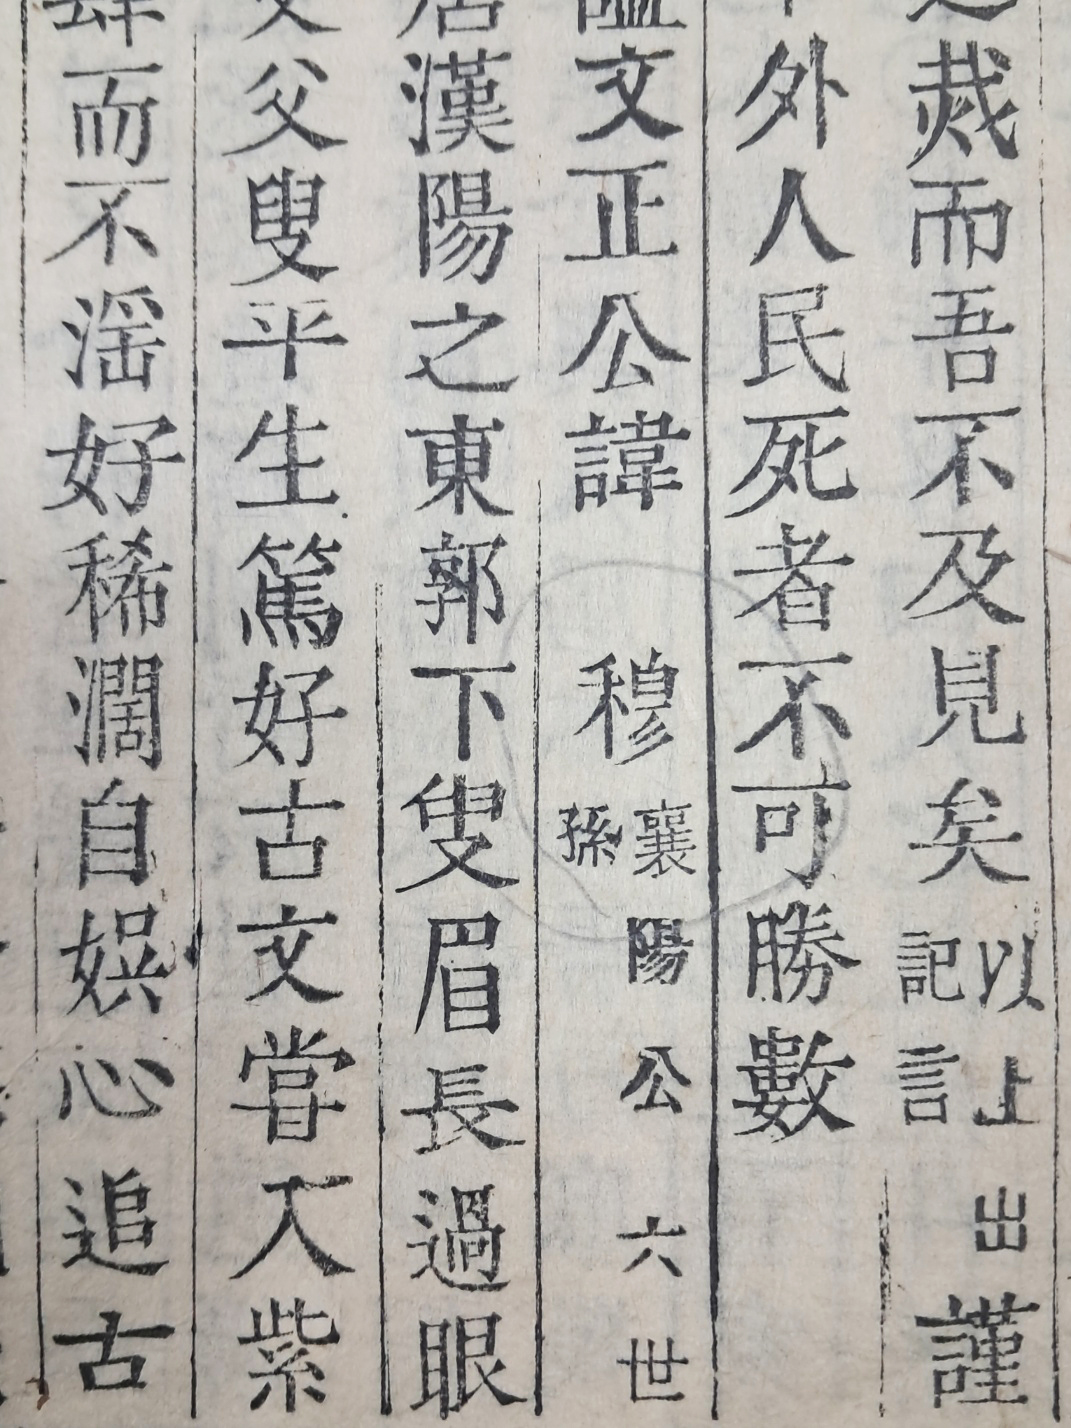 烖而吾不及見矣以上出謹記言
外人民死者不可勝數
謚文正公諱穆襄陽公六世孫
居漢陽之東郭下叟眉長過眼
父叟平生篤好古文嘗入紫
肆而不滛好稀濶自娯心追古